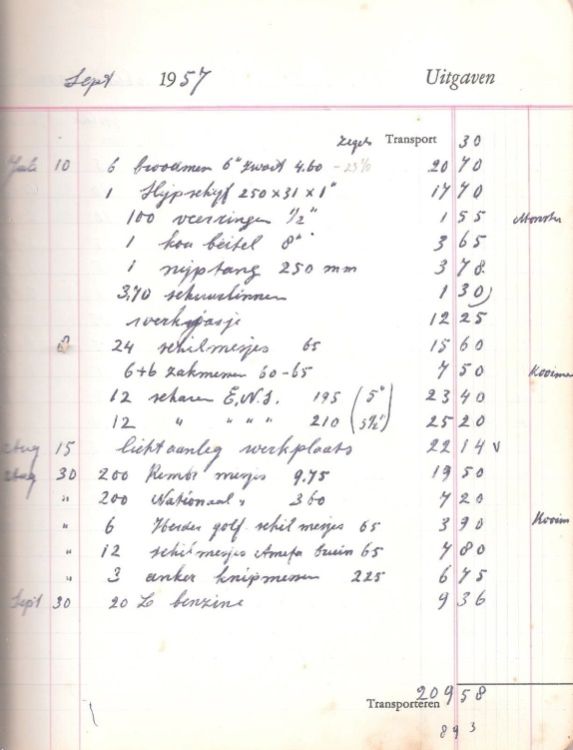 Sept 1957 Uitgaven
zegels Transport 30
Juli 10 6 broodmen 6" zwart 4.60 - 23% 20 70
1 slijpschijf 250 x 31 x 1" 17 70
100 veerringen 1/2" 1 55 Monster
1 kou beitel 8" 3 65
1 nijptang 250 mm 3 78
3,70 schuurlinnen 1 30)
werkjasje 12 25
24 schilmesjes 65 15 60
6+6 zakmessen 60-65 7 50
12 scharen E.N.S. 195 (5") 23 40
12 " " " " 210 (5 1/2") 25 20
Aug 15 lichtaanleg werkplaats 22 14 v
Aug 30 200 Rembr mesjes 9.75 19 50
" 200 Nationaal " 360 7 20
" 6 Herder golf schilmesjes 65 3 90 Kooim
" 12 schilmesjes Amefa bruin 65 7 80
" 3 anker knipmessen 225 6 75
Sept 30 20 L benzine 9 36
Transporteren 209 58
893